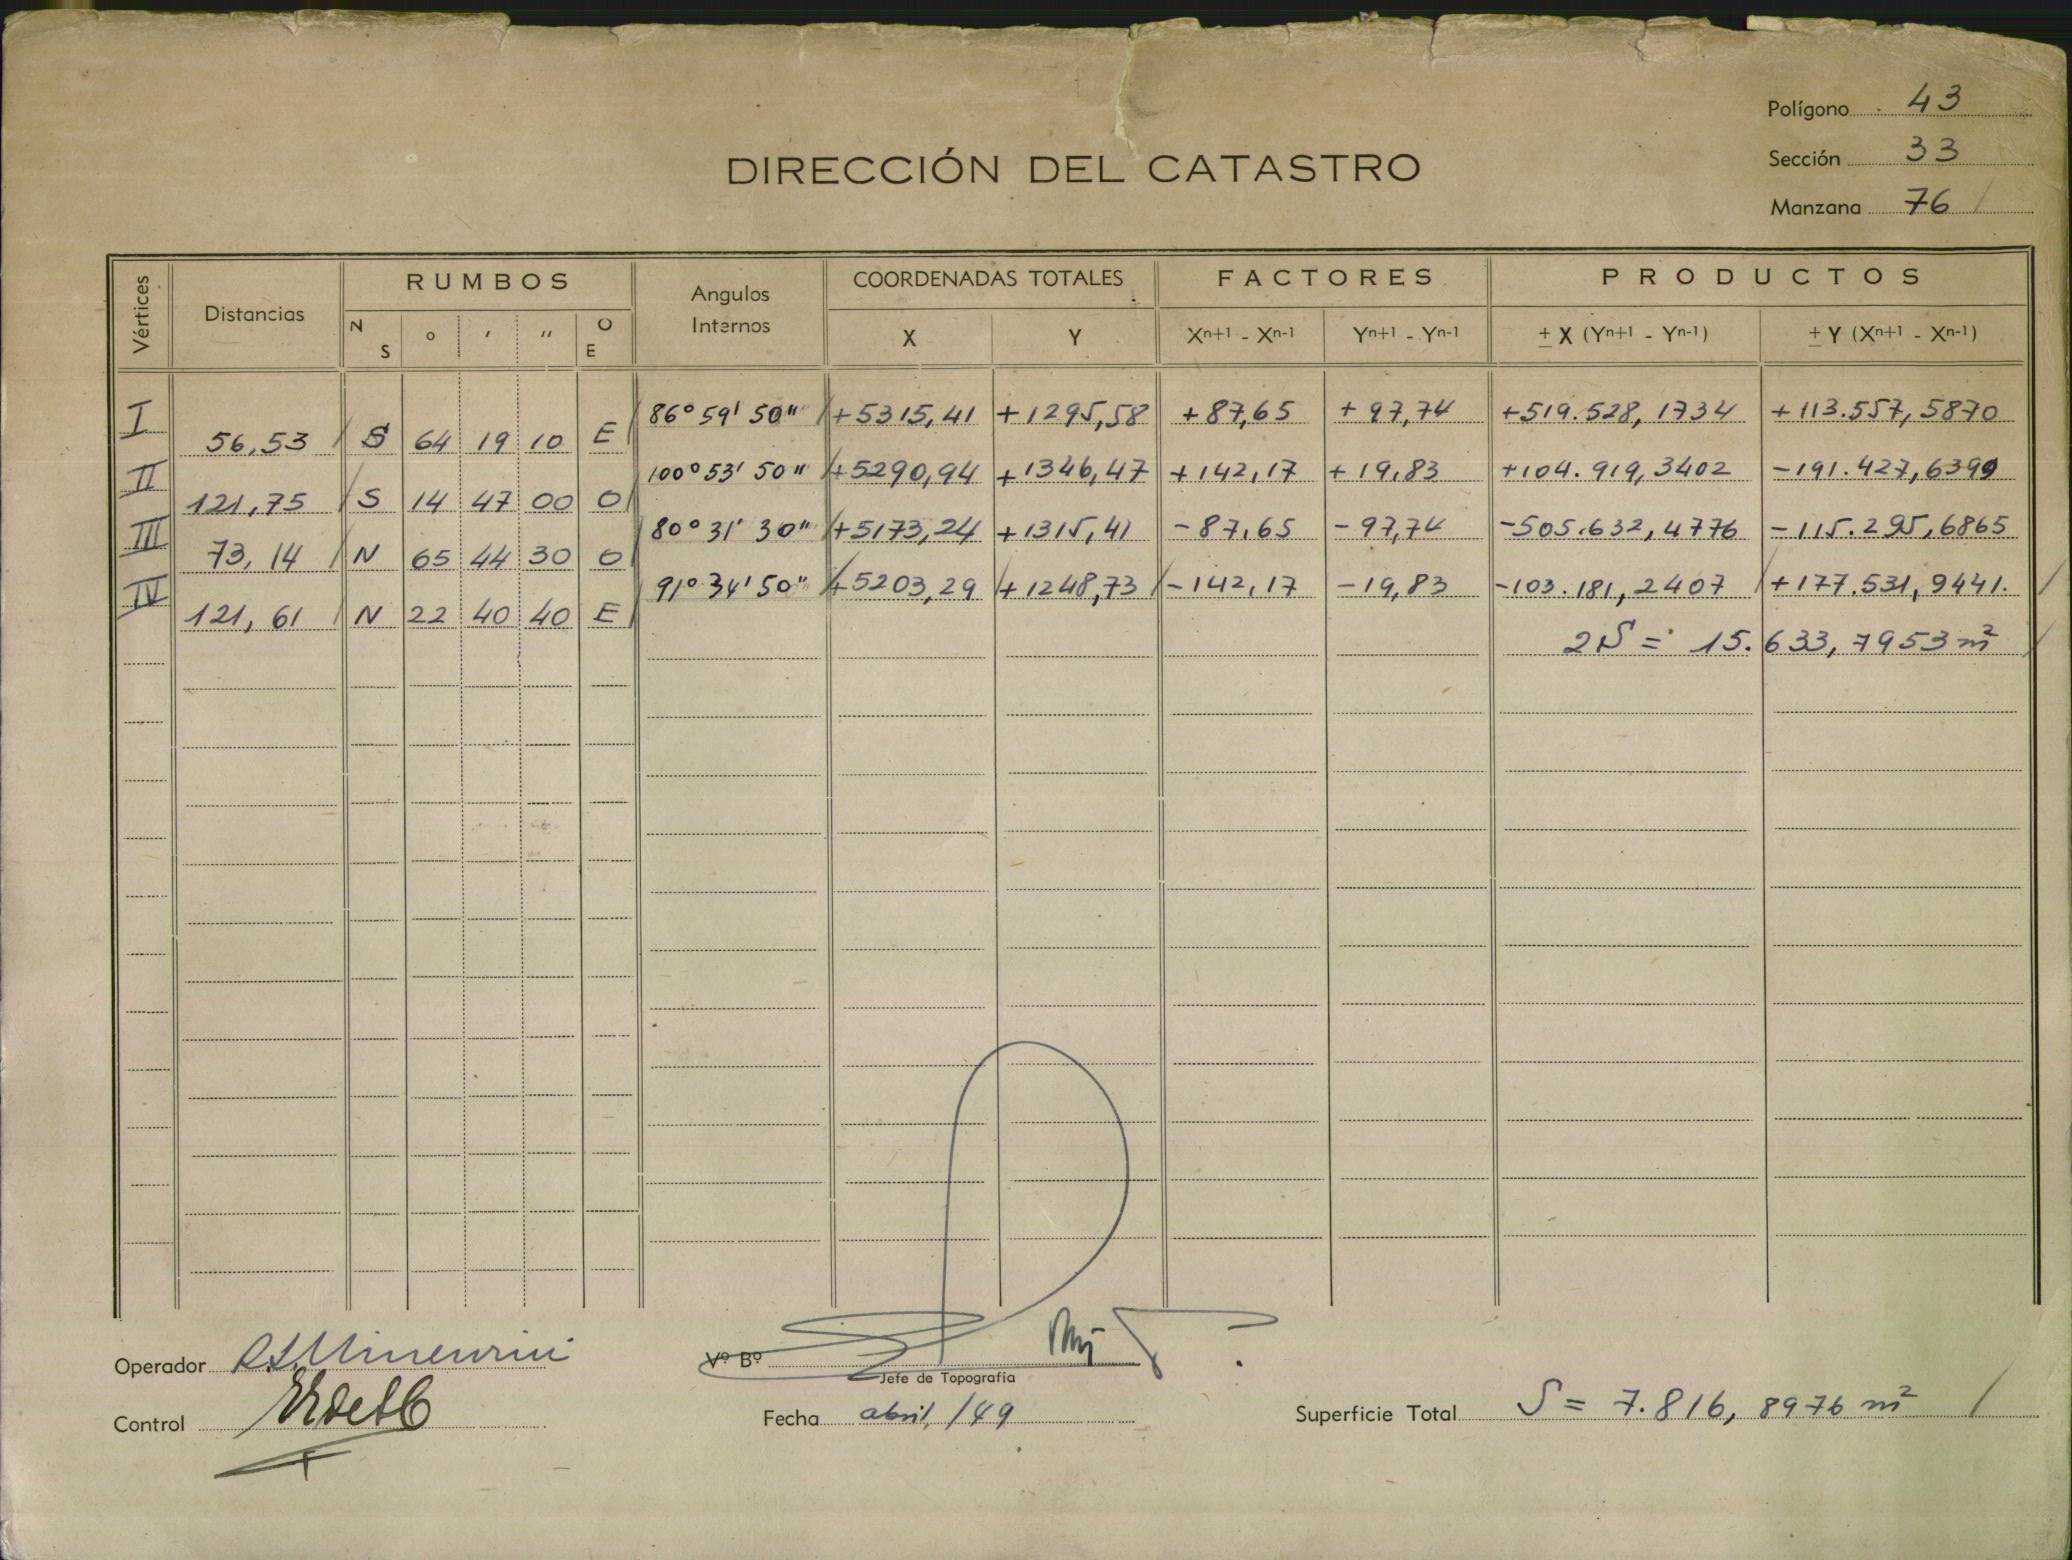 Polígono 43
Sección 33
Manzana 76
DIRECCIÓN DEL CATASTRO
Vértices Distancias RUMBOS Angulos Internos COORDENADAS TOTALES FACTORES PRODUCTOS
N S ° ' " O E X Y Xn+1 - Xn-1 Yn+1 - Yn-1 ± X (Yn+1 - Yn-1) ± Y (Xn+1 - Xn-1)
I 86° 59' 50" +5315,41 +1295,58 +87,65 +97,74 +519.528,1734 +113.557,5870
56,53 S 64 19 10 E
II 100° 53' 50" +5290,94 +1346,47 +142,17 +19,83 +104.919,3402 -191.427,6399
121,75 S 14 47 00 O
III 80° 31' 30" +5173,24 +1315,41 -87,65 -97,74 -505.632,4776 -115.295,6865
73,14 N 65 44 30 O
IV 91° 34' 50" +5203,29 +1248,73 -142,17 -19,83 -103.181,2407 +177.531,9441.
121,61 N 22 40 40 E
2S = 15.633,7953 m²
Operador
Vº Bº
Jefe de Topografía
Control
Fecha abril /49
Superficie Total S = 7.816,8976 m²